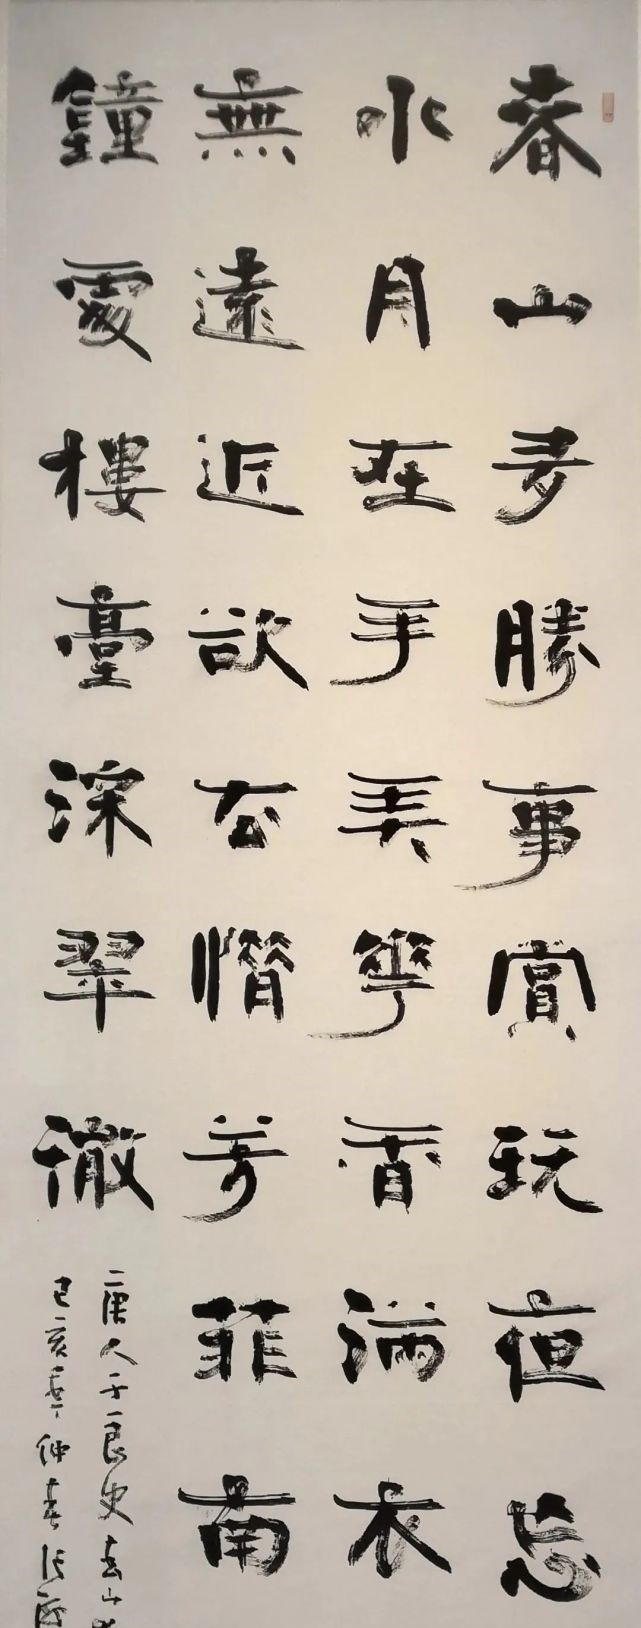 春山多勝事賞玩夜忘
水月在手弄華香滿衣
無遠近欲去惜芳菲南
鐘處樓臺深翠微
唐人于良史春山
己亥年仲春張